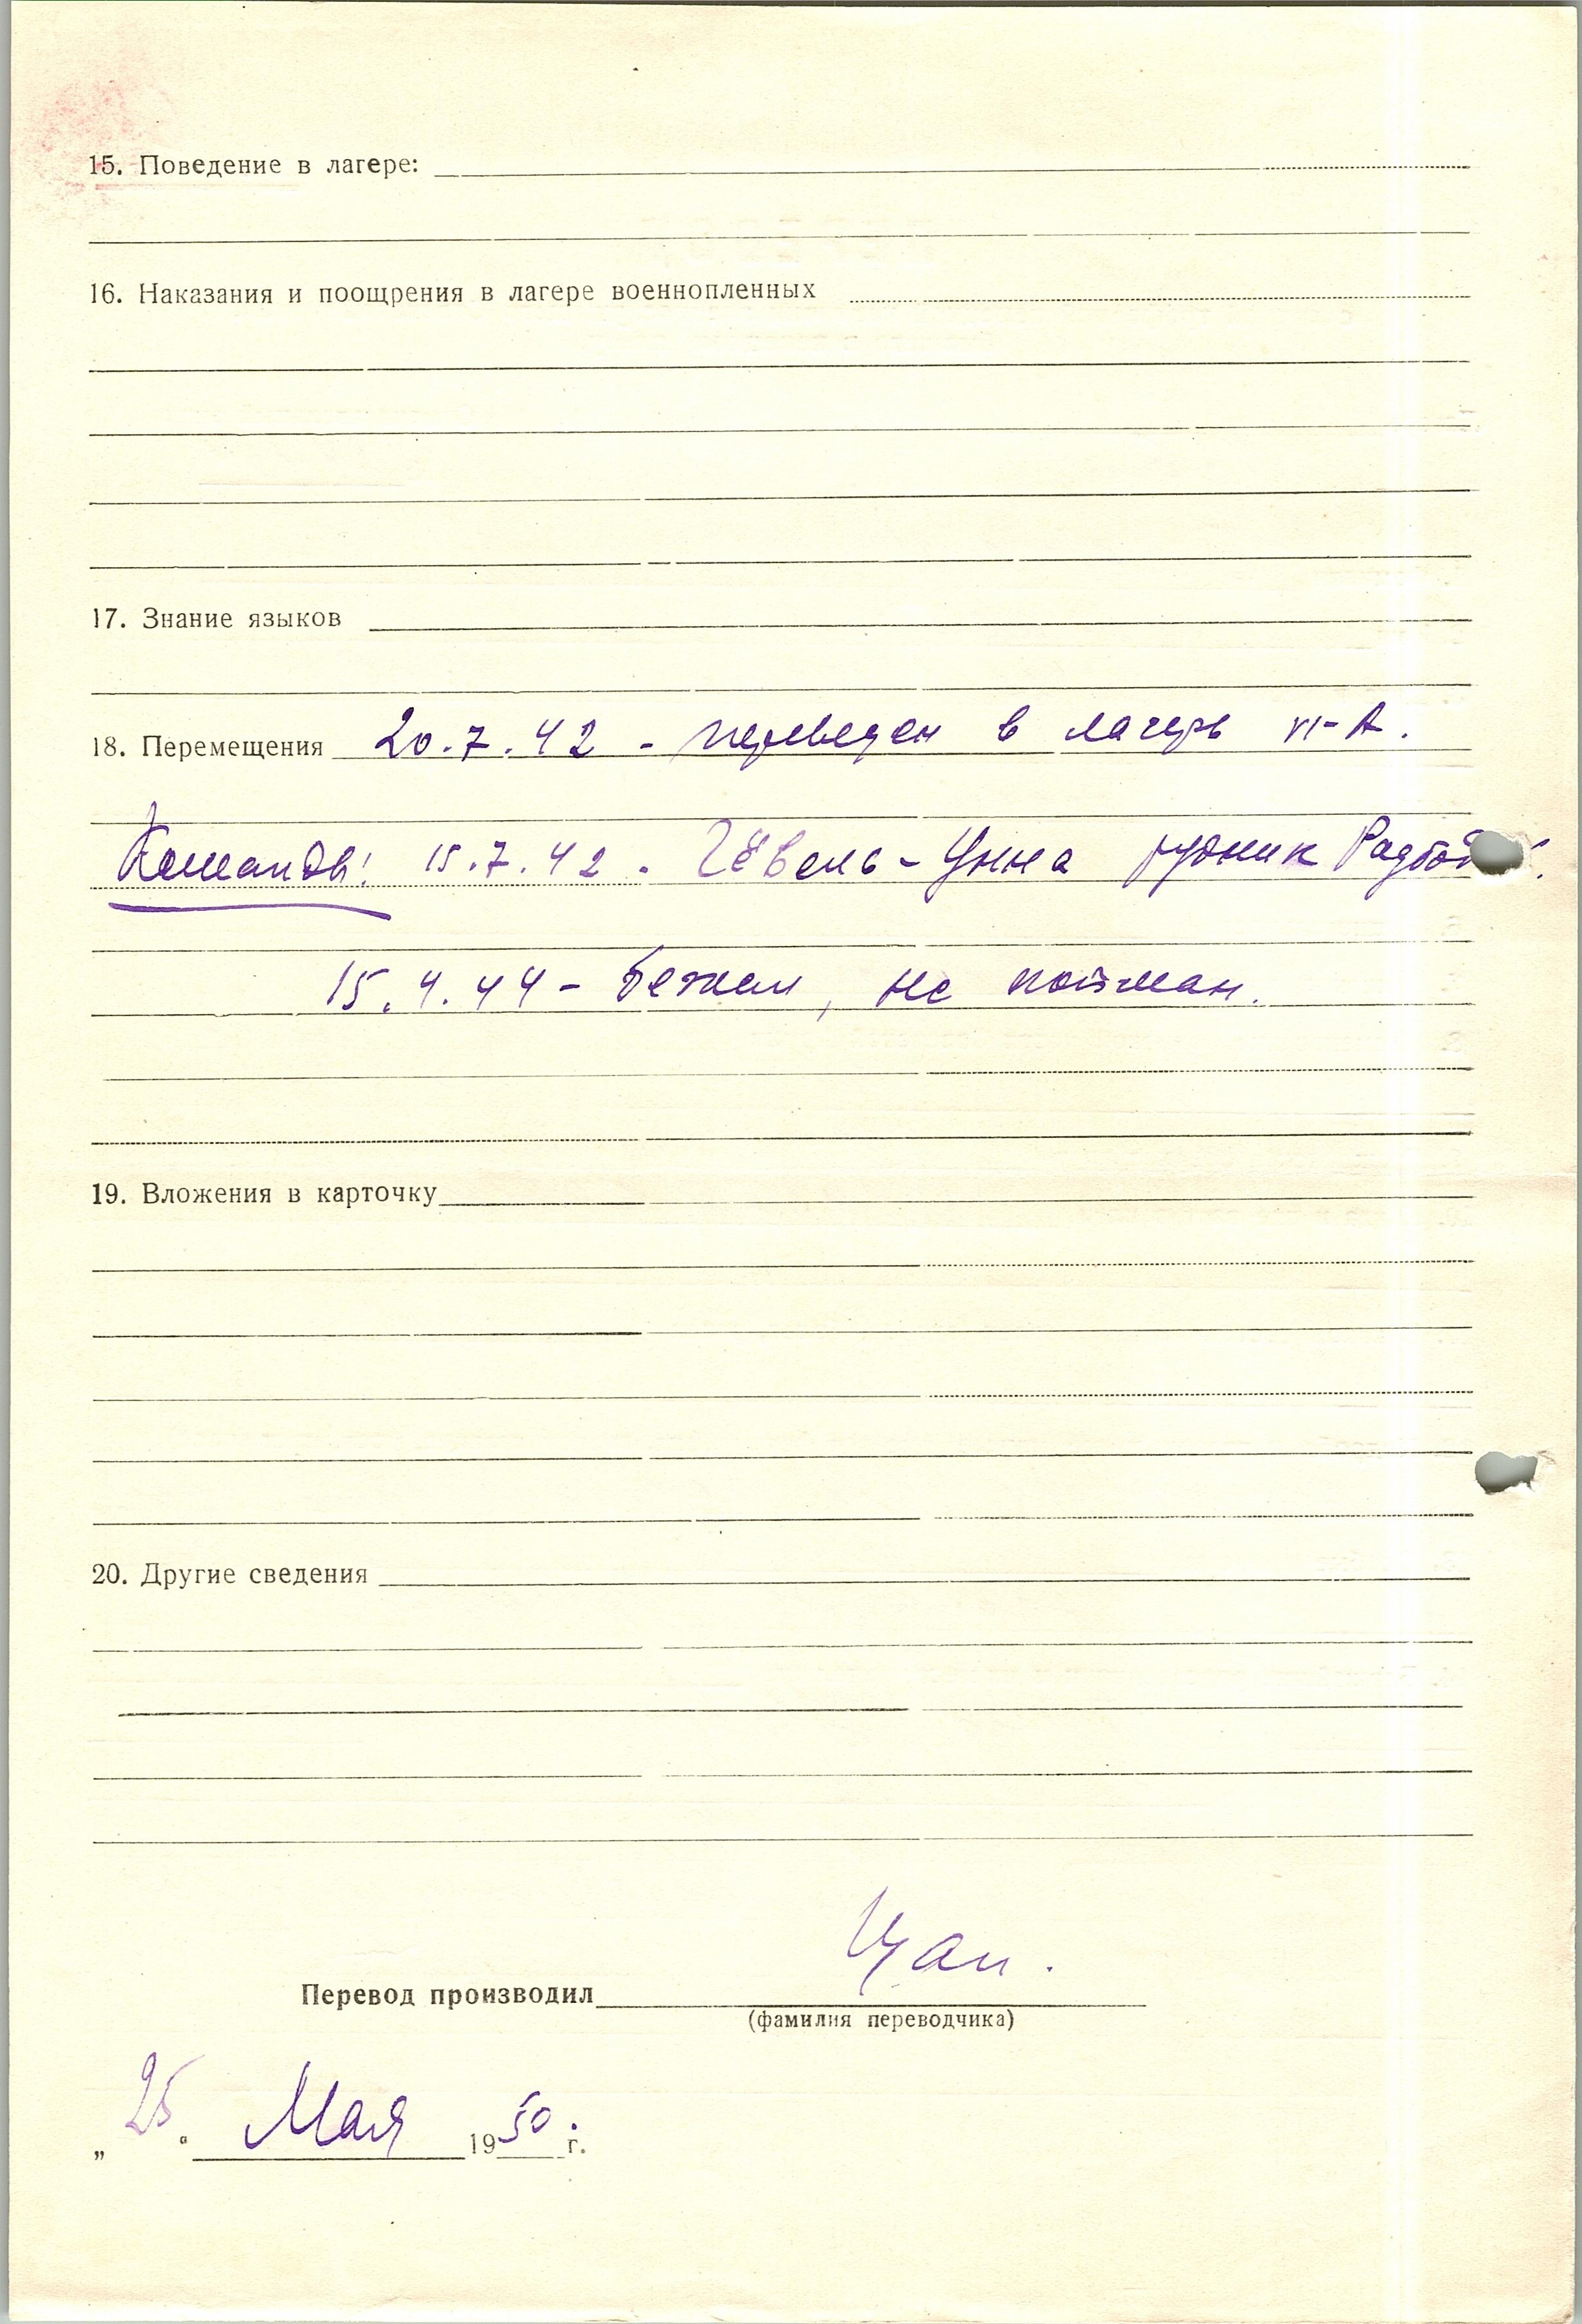 15. Поведение в лагере:
16. Наказания и поощрения в лагере военнопленных
17. Знание языков
18. Перемещения 20.7.42 - переведен в лагерь VI-A.
Команды: 15.7.42 - Гёвель-Унна рудник Радбод
15.4.44 - бежал, не пойман.
19. Вложения в карточку
20. Другие сведения
Перевод производил
(фамилия переводчика)
„25“ Мая 1950 г.